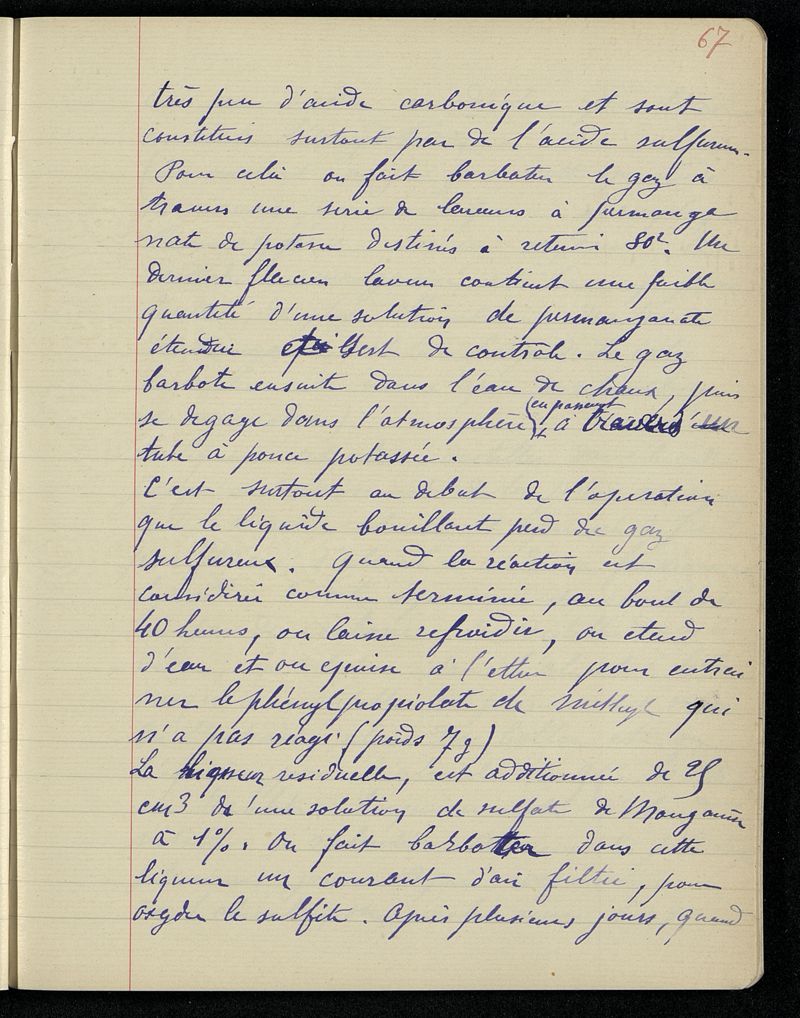 67
très peu d'acide carbonique et sont
constitués surtout par de l'acide sulfureux.
Pour celà on fait barboter le gaz à
travers une serie de laveurs à permanga
nate de potasse destinés à retenir SO². Un
dernier flacon laveur contient une faible
quantité d'une solution de permanganate
étendue et sert de contrôle. Le gaz
barbote ensuite dans l'eau de chaux, puis
se degage dans l'atmosphère en passant à travers un
tube à ponce potassée.
C'est surtout au debut de l'operation
que le liquide bouillant perd du gaz
sulfureux. Quand la réaction est
considérée comme terminée, au bout de
40 heures, on laisse refroidir, on etend
d'eau et on epuise à l'ether pour entrai
ner le phénylpropiolate de méthyle qui
n'a pas reagi (poids 7g)
La liqueur residuelle, est additionnée de 25
cm3 d'une solution de sulfate de Manganèse
à 1%. On fait barboter dans cette
liqueur un courant d'air filtré, pour
oxyder le sulfite. Après plusieurs jours, quand